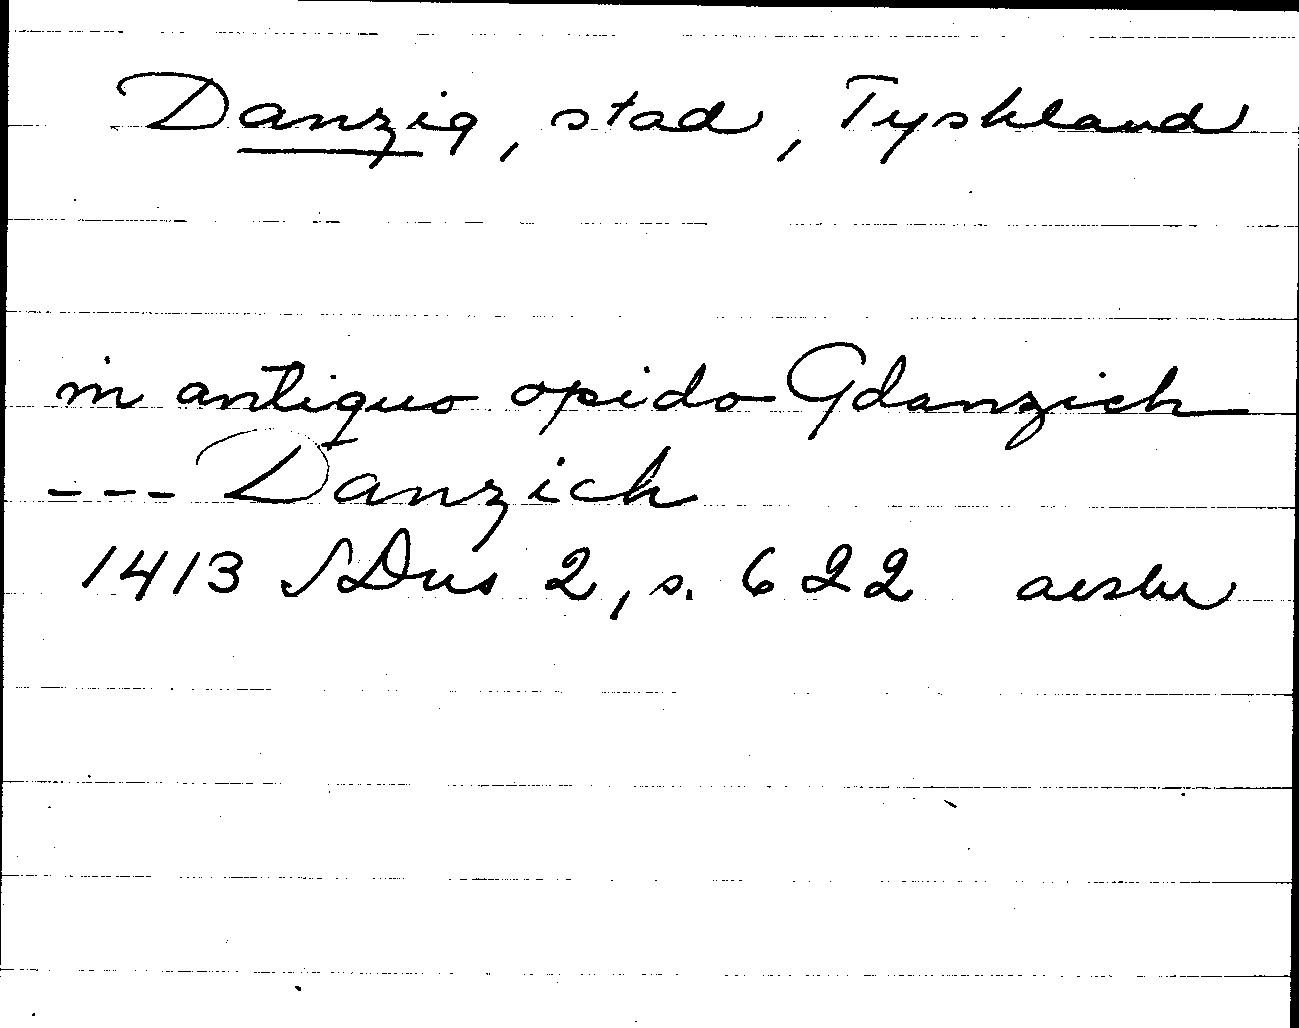 Danzig, stad, Tyskland
in antiquo opido Gdanzich
--- Danzich
1413 SDns 2, s. 622